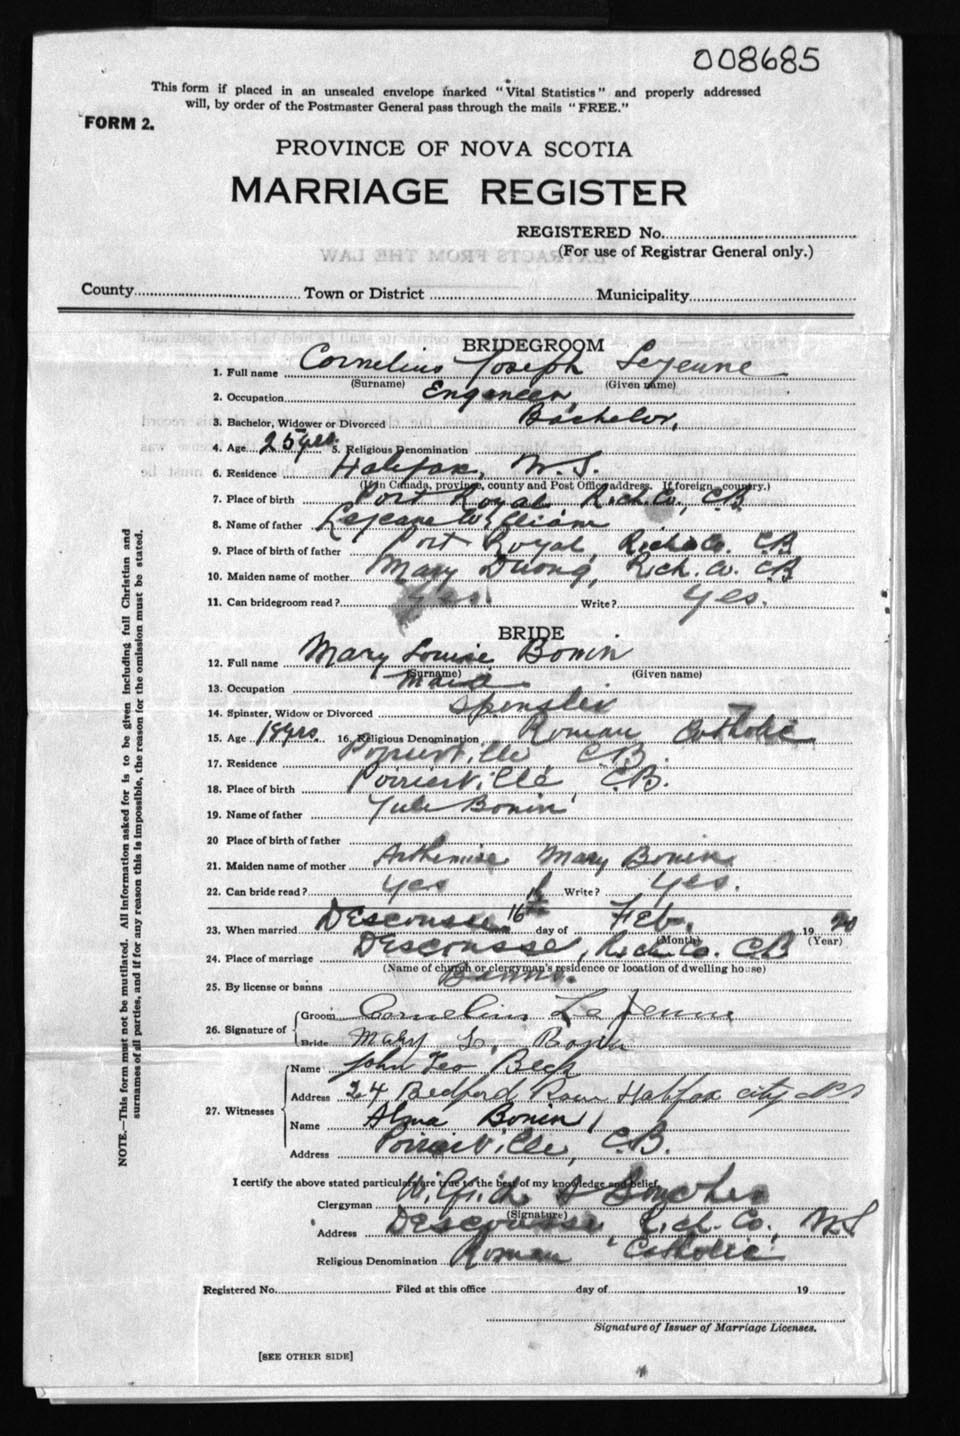 008685
This form if placed in an unsealed envelope marked "Vital Statistics" and properly addressed
will, by order of the Postmaster General pass through the mails "FREE."
FORM 2.
PROVINCE OF NOVA SCOTIA
MARRIAGE REGISTER
REGISTERED No.
(For use of Registrar General only.)
EXTRACTS FROM THE LAW
County Town or District Municipality
BRIDEGROOM
1. Full name Cornelius Joseph Lejeune
(Surname) (Given name)
2. Occupation Engineer,
3. Bachelor, Widower or Divorced Bachelor,
4. Age 25 yrs. 5. Religious Denomination
6. Residence Halifax, N.S.
(If in Canada, province, county and Post Office address. If foreign, country.)
7. Place of birth Port Royal Rich. Co., C.B.
8. Name of father William
9. Place of birth of father Port Royal, Rich. Co. C.B
10. Maiden name of mother Mary Duong, Rich. Co. C.B
11. Can bridegroom read? Yes. Write? Yes.
BRIDE
12. Full name Mary Louise Bonin
(Surname) (Given name)
13. Occupation Maid
14. Spinster, Widow or Divorced Spinster
15. Age 18 yrs. 16. Religious Denomination Roman Catholic
17. Residence Poirierville C.B.
18. Place of birth Poirierville, C.B.
19. Name of father Jule Bonin
20 Place of birth of father
21. Maiden name of mother Arthemise Mary Bonin
22. Can bride read? Yes Write? Yes.
23. When married Descousse 16th day of Feb. 1920
(Month) (Year)
24. Place of marriage Descousse, Rich. Co. C.B
(Name of church or clergyman's residence or location of dwelling house)
25. By license or banns Banns.
26. Signature of Groom Cornelius LeJeune
Bride Mary L. Bonin
27. Witnesses Name John Leo Beck
Address 24 Bedford Row Halifax city N.S
Name Alma Bonin
Address Poirierville, C.B.
I certify the above stated particulars are true to the best of my knowledge and belief,
Clergyman
(Signature)
Address Descousse, Rich. Co., N.S
Religious Denomination Roman Catholic
Registered No. Filed at this office day of 19
Signature of Issuer of Marriage Licenses.
[SEE OTHER SIDE]
NOTE.—This form must not be mutilated. All information asked for is to be given including full Christian and
surnames of all parties, and if for any reason this is impossible, the reason for the omission must be stated.